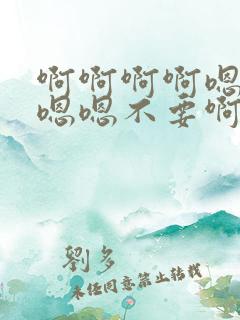 啊啊啊啊嗯
嗯嗯不要啊
劉多
未经同意禁止转载